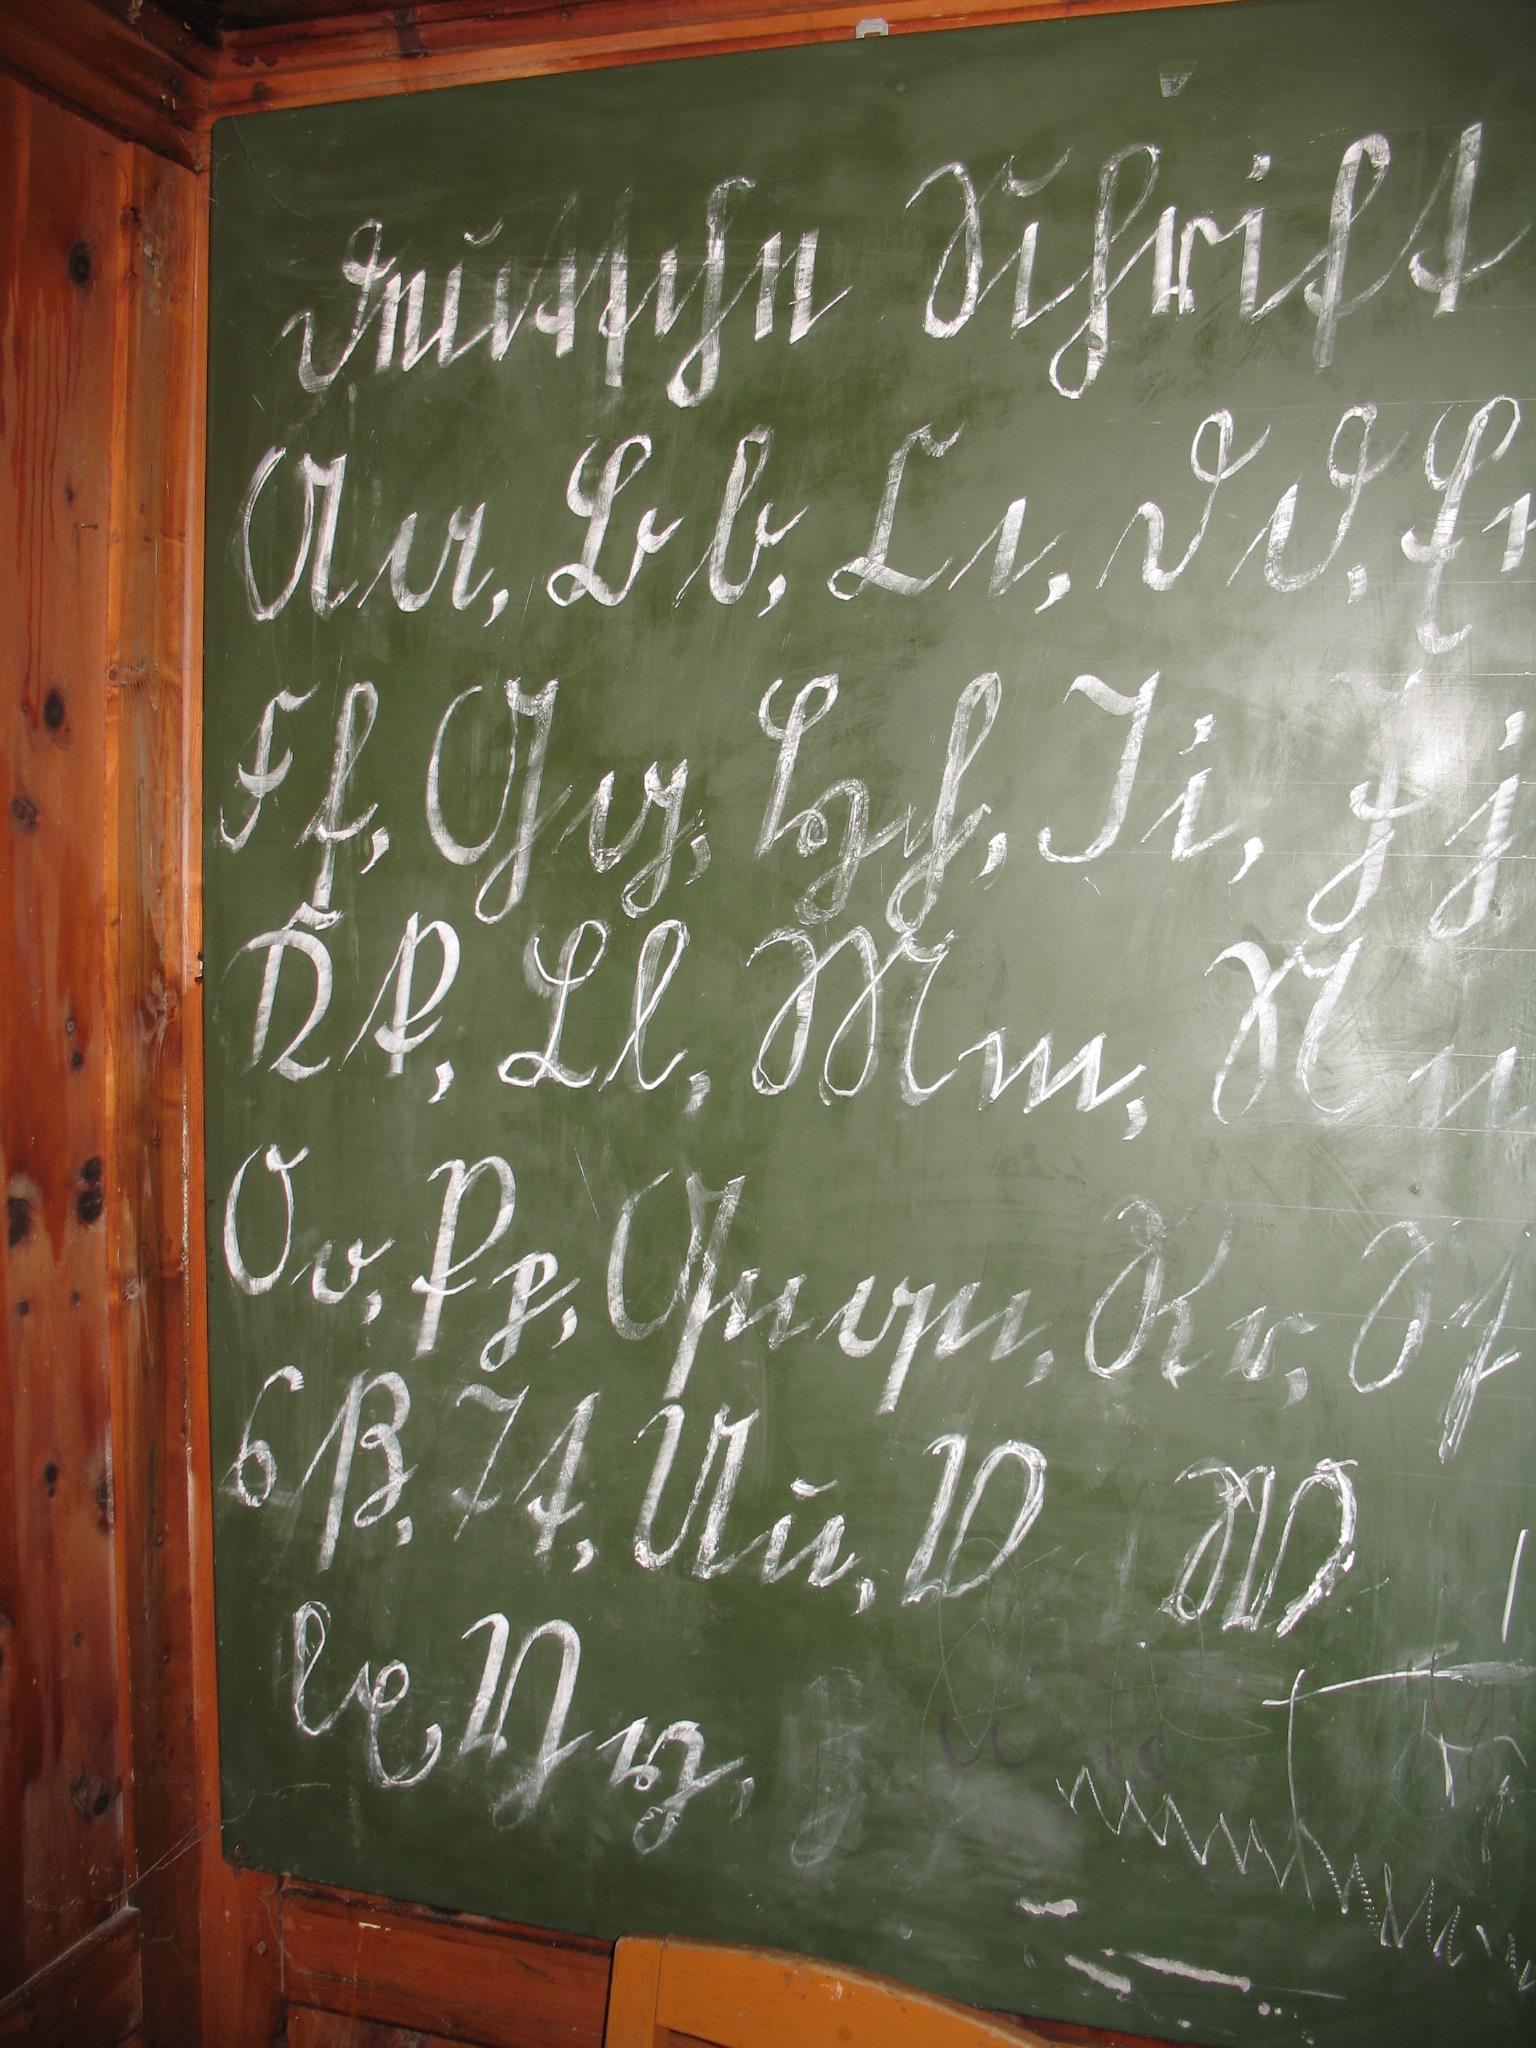 Deutsche Schrift
A a, B b, C c, D d, E e
F f, G g, H h, I i, J j
K k, L l, M m, N n
O o, P p, Qu qu, R r, S ſ
s ß, T t, U u, V W
X x, Y y,